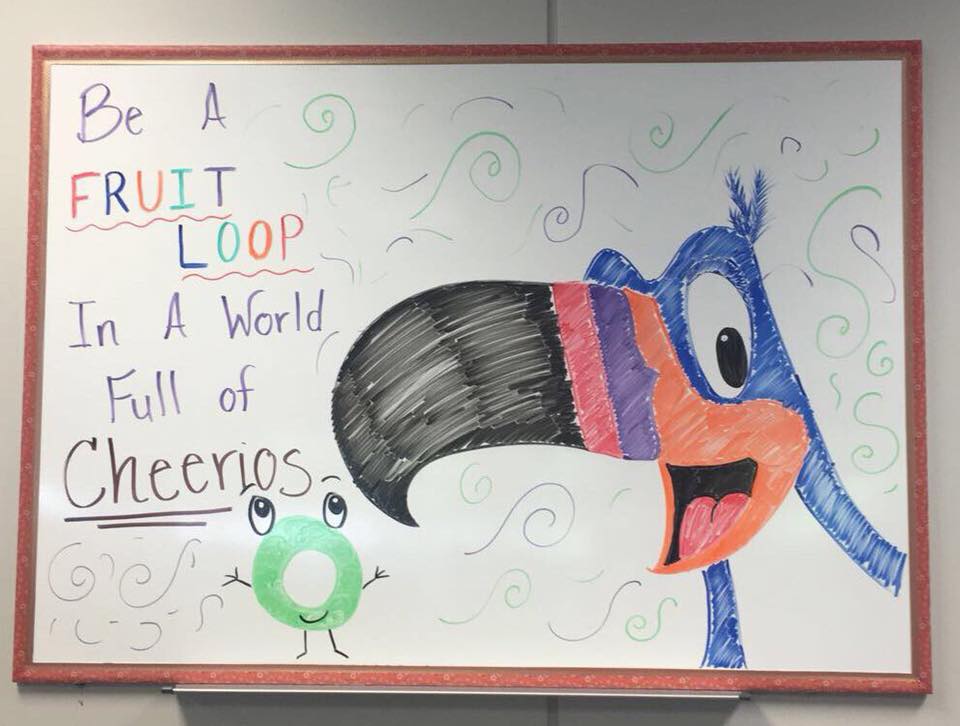 Be A
FRUIT
LOOP
In A World
Full of
Cheerios